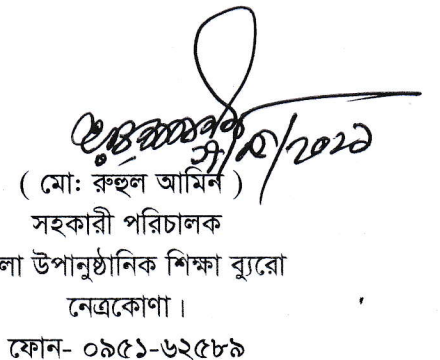 ( মো: রুহুল আমিন )
সহকারী পরিচালক
লা উপানুষ্ঠানিক শিক্ষা ব্যুরো
নেত্রকোণা।
ফোন- ০৯৫১-৬২৫৮৯